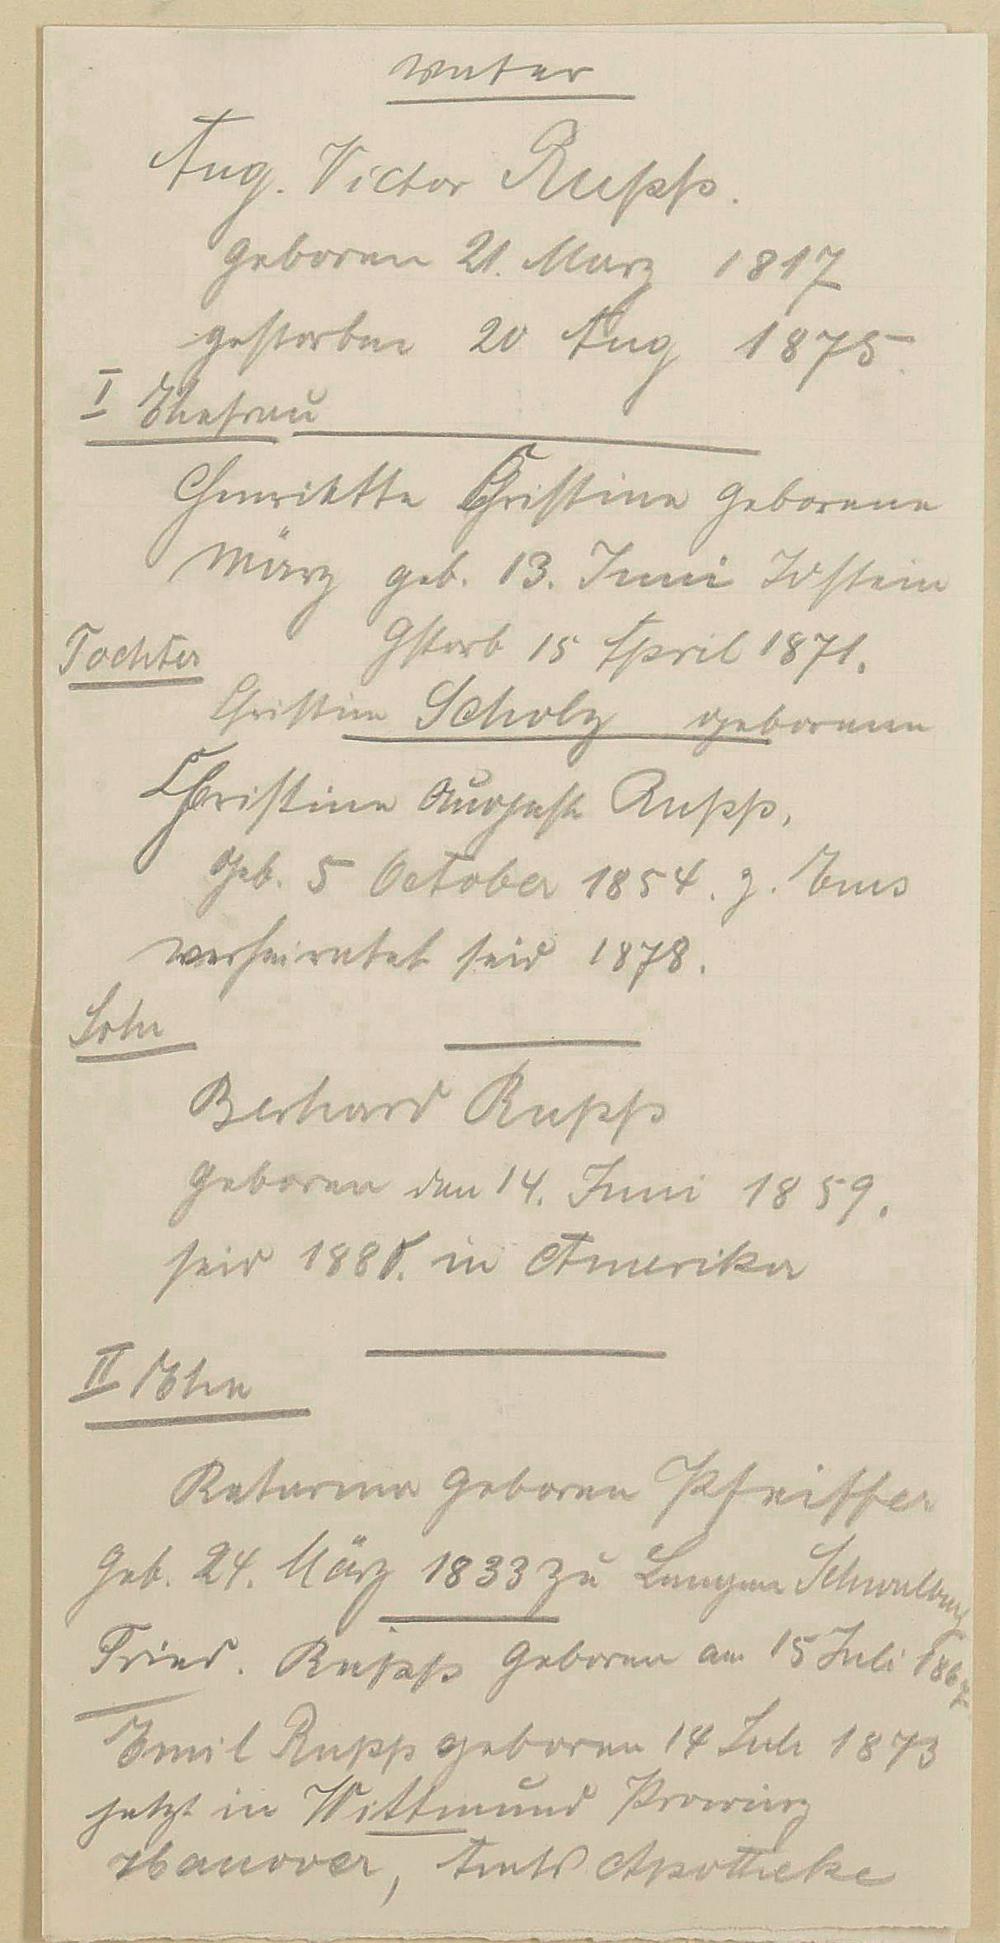 Vater
Aug. Victor Rupp.
geboren 21. März 1817
gestorben 20 Aug 1875.
I Ehefrau
Henriette Christine geborene
März geb. 13. Juni Idstein
Tochter
Gstorb 15 April 1871.
Christine Scholz geborene
Christine August Rupp,
geb. 5 October 1854. z. Ems
verheiratet seid 1878.
Sohn
Berhard Rupp
geboren den 14. Juni 1859.
seid 1888. in Amerika
II Ehe
Katarina geboren Pfeiffer
geb. 24. März 1833 zu Langen Schwalbach
Fried. Rupp geboren am 15 Juli
Emil Rupp geboren 14 Juli 1873
jetzt in Wittmund Provinz
Hanover, Amts Apotheke